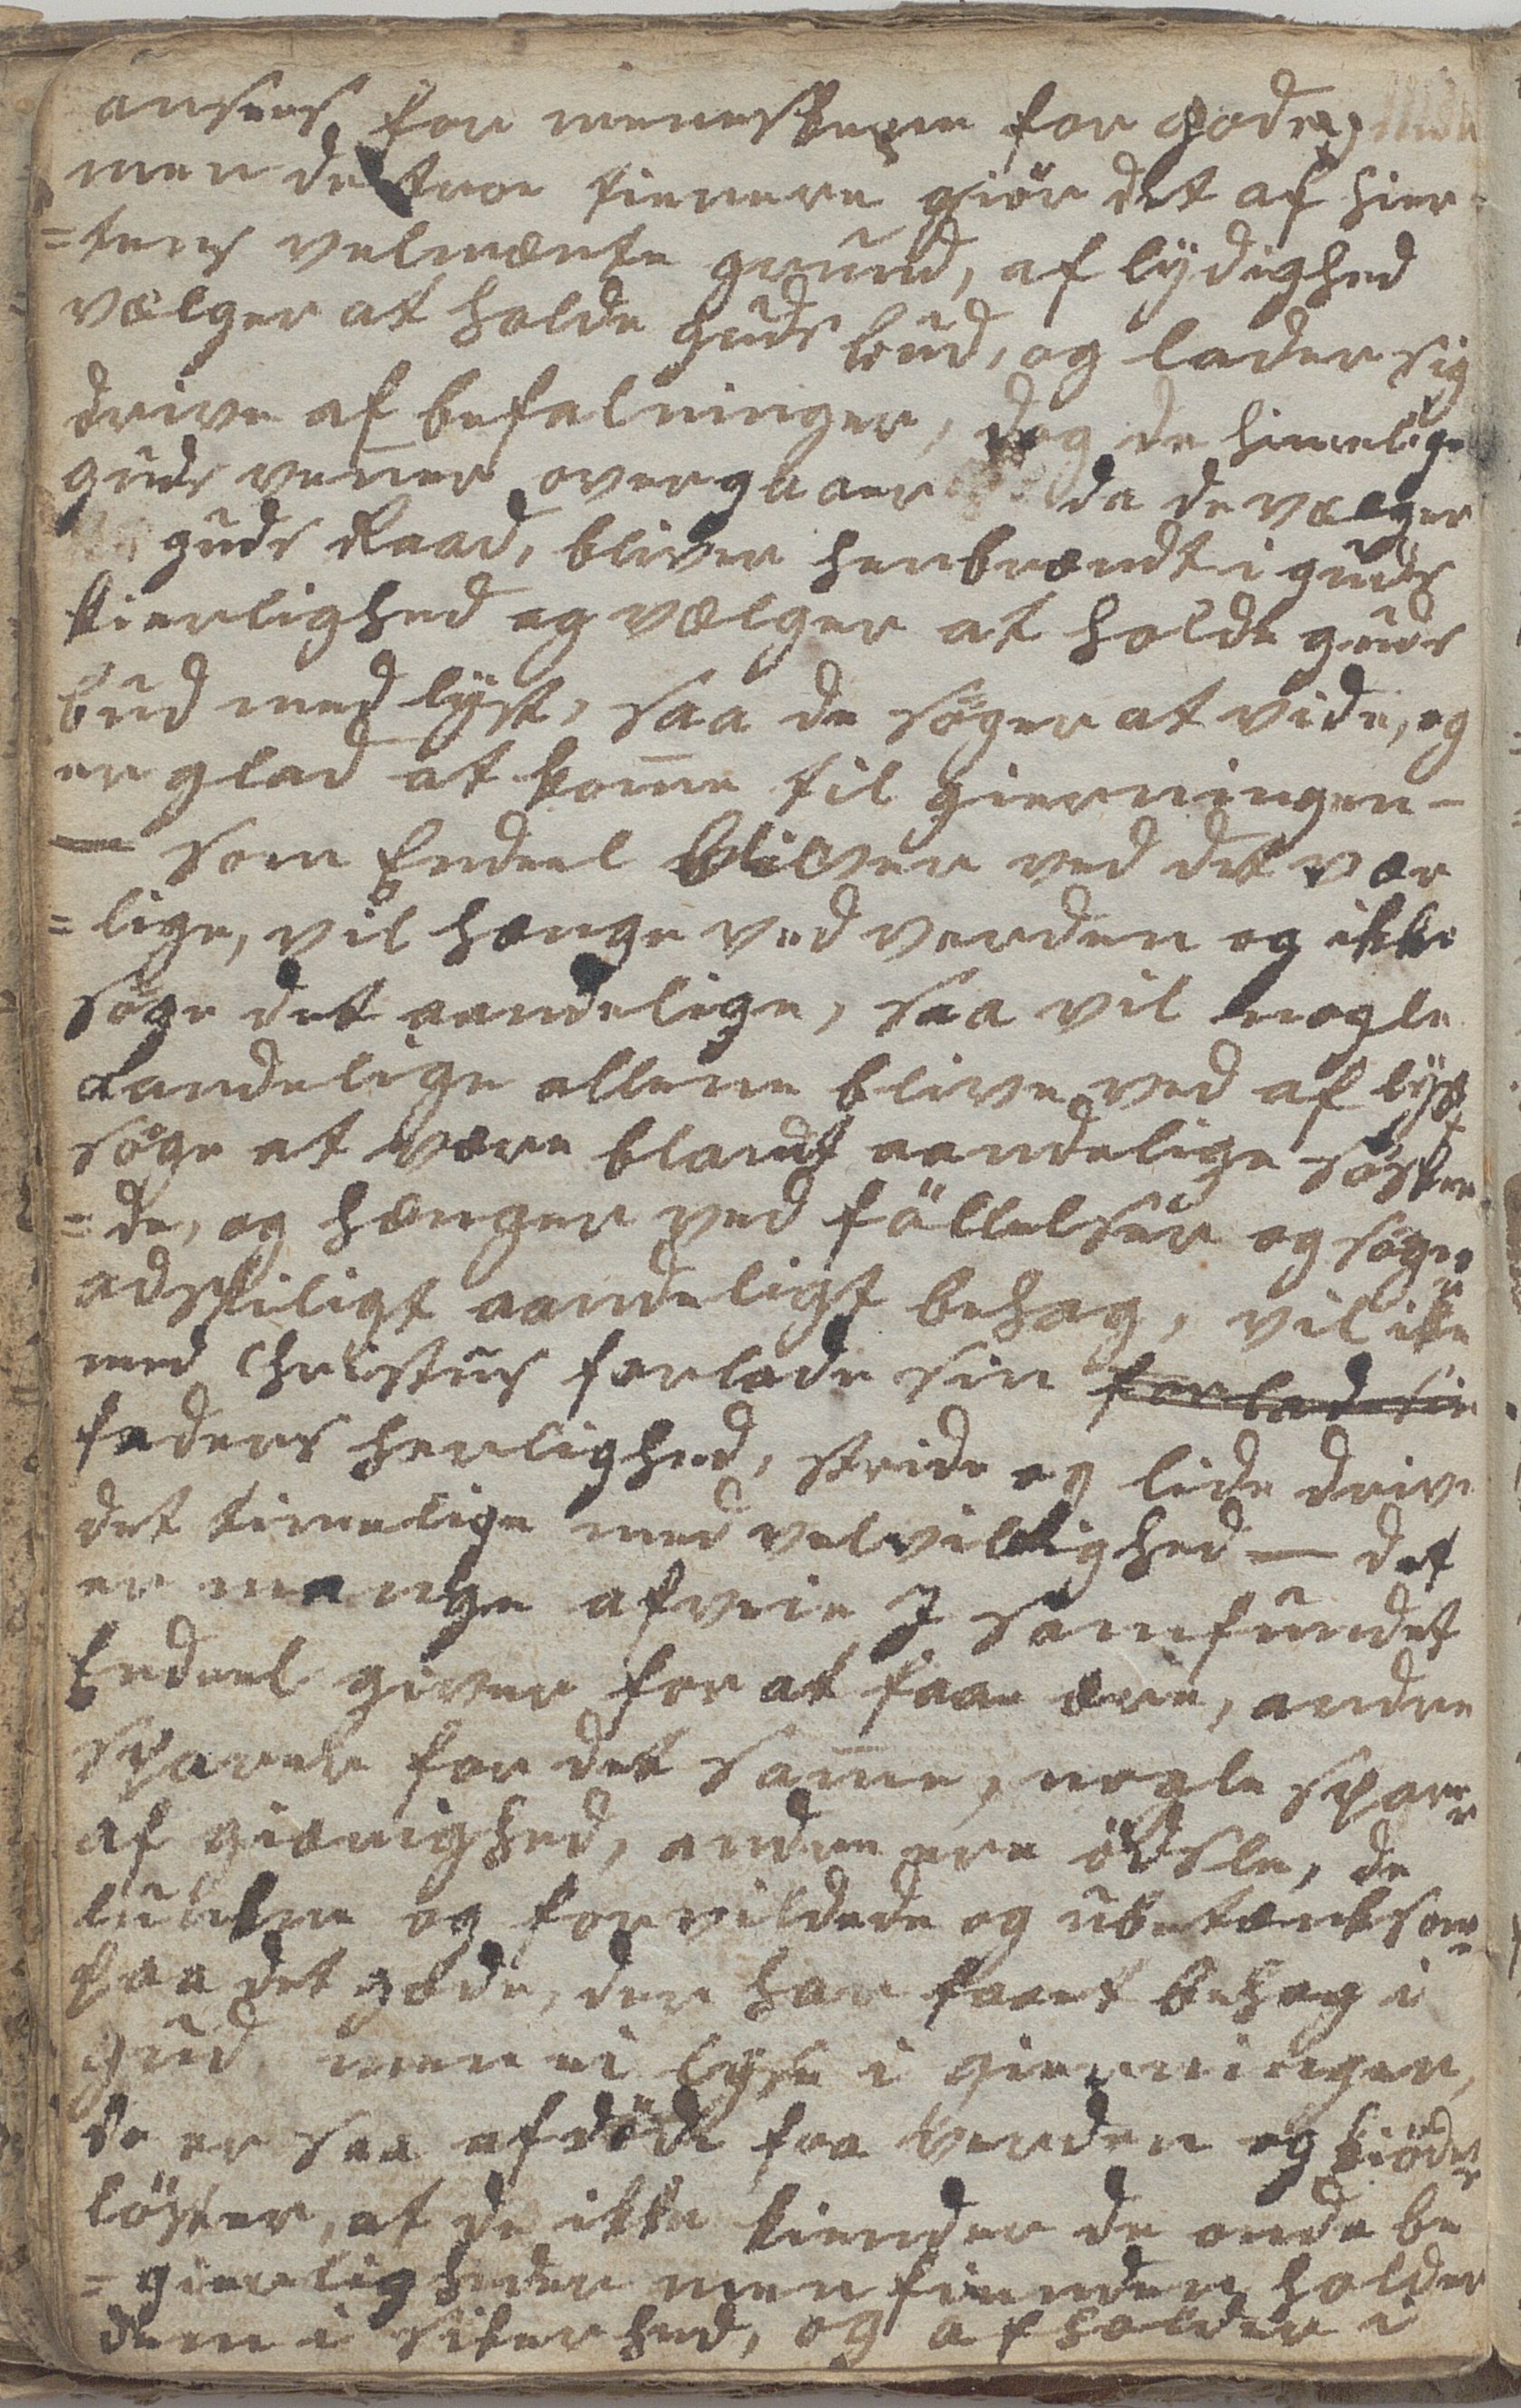 ansees for meneskene for gode,
men de troe tienere giör det af hier-
=tens velmente grund, af lydighed
vælger at holde guds bud, og lader sig
drive af befalninger, dog de himelige
guds vener overgaaer da de vælger
guds Raad, bliver henbrændt i guds
kierlighed og vælger at holde guds
bud med lyst, saa de söger at vide, og
er glad at kome til gierningen -
— som Endeel bliver ved det vær
=lige, vil hænge ved verden og ikke
söge det aandelige, saa vil nogle
Aandelige allene blive ved af lyst
söge at være blandt aandelige sösken
=de, og hænger ved föllelser og söger
adskiligt aandeligt behag, vil ike
med Christus forlade sin forlade sin
faders herlighed, stride og lide drive
det timelige med velvillighed — det
er mange afveie I samfundet
Endeel giver for at faae ære, andre
sparer for det same, nogle sparer
af gierighed, andre ere ödsle, de
lunkne og forvildede og ubetænksom
paa det gode, der har faaet behag i
gud men ei lyst i gierningen,
de er saa afdöde fra verden og kiöds
löster, at de ikke kiender de onde be
=gierligheder men fienden holder
dem i sikerhed, og afholder i